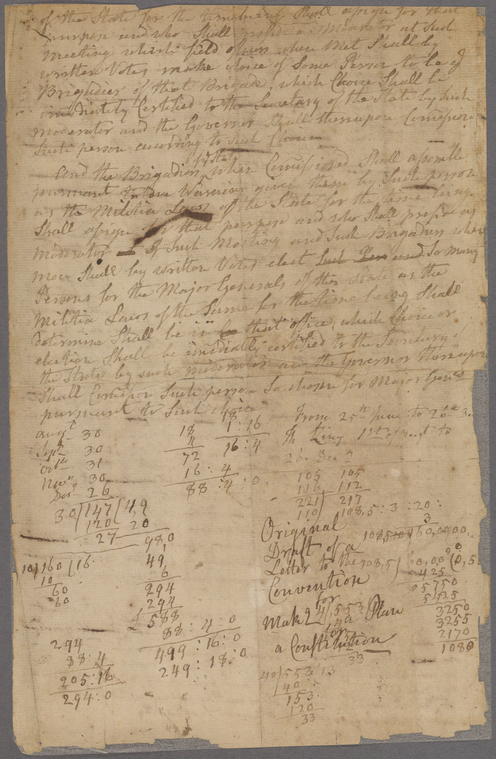 of the State for the time being Shall assign for that
Purpose and who Shall preside as Moderator at Such
Meeting which field officers when Met Shall by
written Votes make choice of Some Person to be a
Brigadier of that Brigade, which Choice Shall be
imidiately Certified to the Secretary of the State by Such
Moderator and the Governor Shall thereupon Comission
Such person according to Such Choice
And the Brigadiers when Comissioned Shall assemble
pursuant to due Warning given them by Such person
as the Militia Laws of the State for the time being
Shall assign for that purpose and who Shall preside as
moderator of Such Meeting and Such Brigadiers when
met Shall by written Votes elect and So many
Persons for the Major Generals of this State as the
Militia Laws of the Same for the time being Shall
determine Shall be in that office, which Choice or
election Shall be imidiately certified to the Secretary
the State by such moderator and the Governor thereupon
Shall Comission Such person So chosen for Major Genls
pursuant to Such choice
augt 30
Sept 30
octr 31
Novr 30
Decr 26
30/147/4,9
120 20
27 980
18 1:16
4 16:4
72
16:4
88:4:0
From 25th June to 26th
105 105
116 112
221 217
110 108,5:3:20:
Original
Draft of a
Letter to the
Convention
for
Making Plan
a Constitution
10/160/16:
10
60
60
49
6
294
294
588
88:4:0
499:16:0
249:18:0
294
88:4
205:16
294:0
425
5750
5425
3250
3255
2170
1080
40/553/13
40
153
120
33